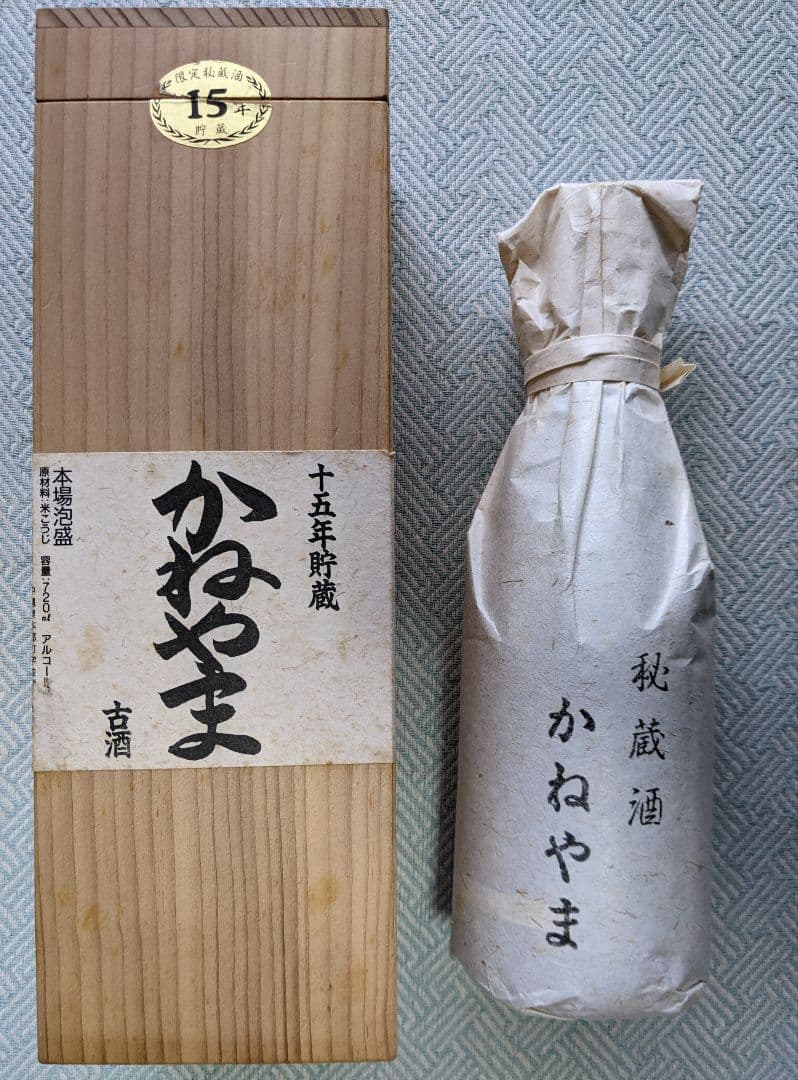 限定秘蔵酒
15年
貯蔵
十五年貯蔵
かねやま
古酒
本場泡盛
原材料:米こうじ 容量:720ml アルコール
秘蔵酒
かねやま